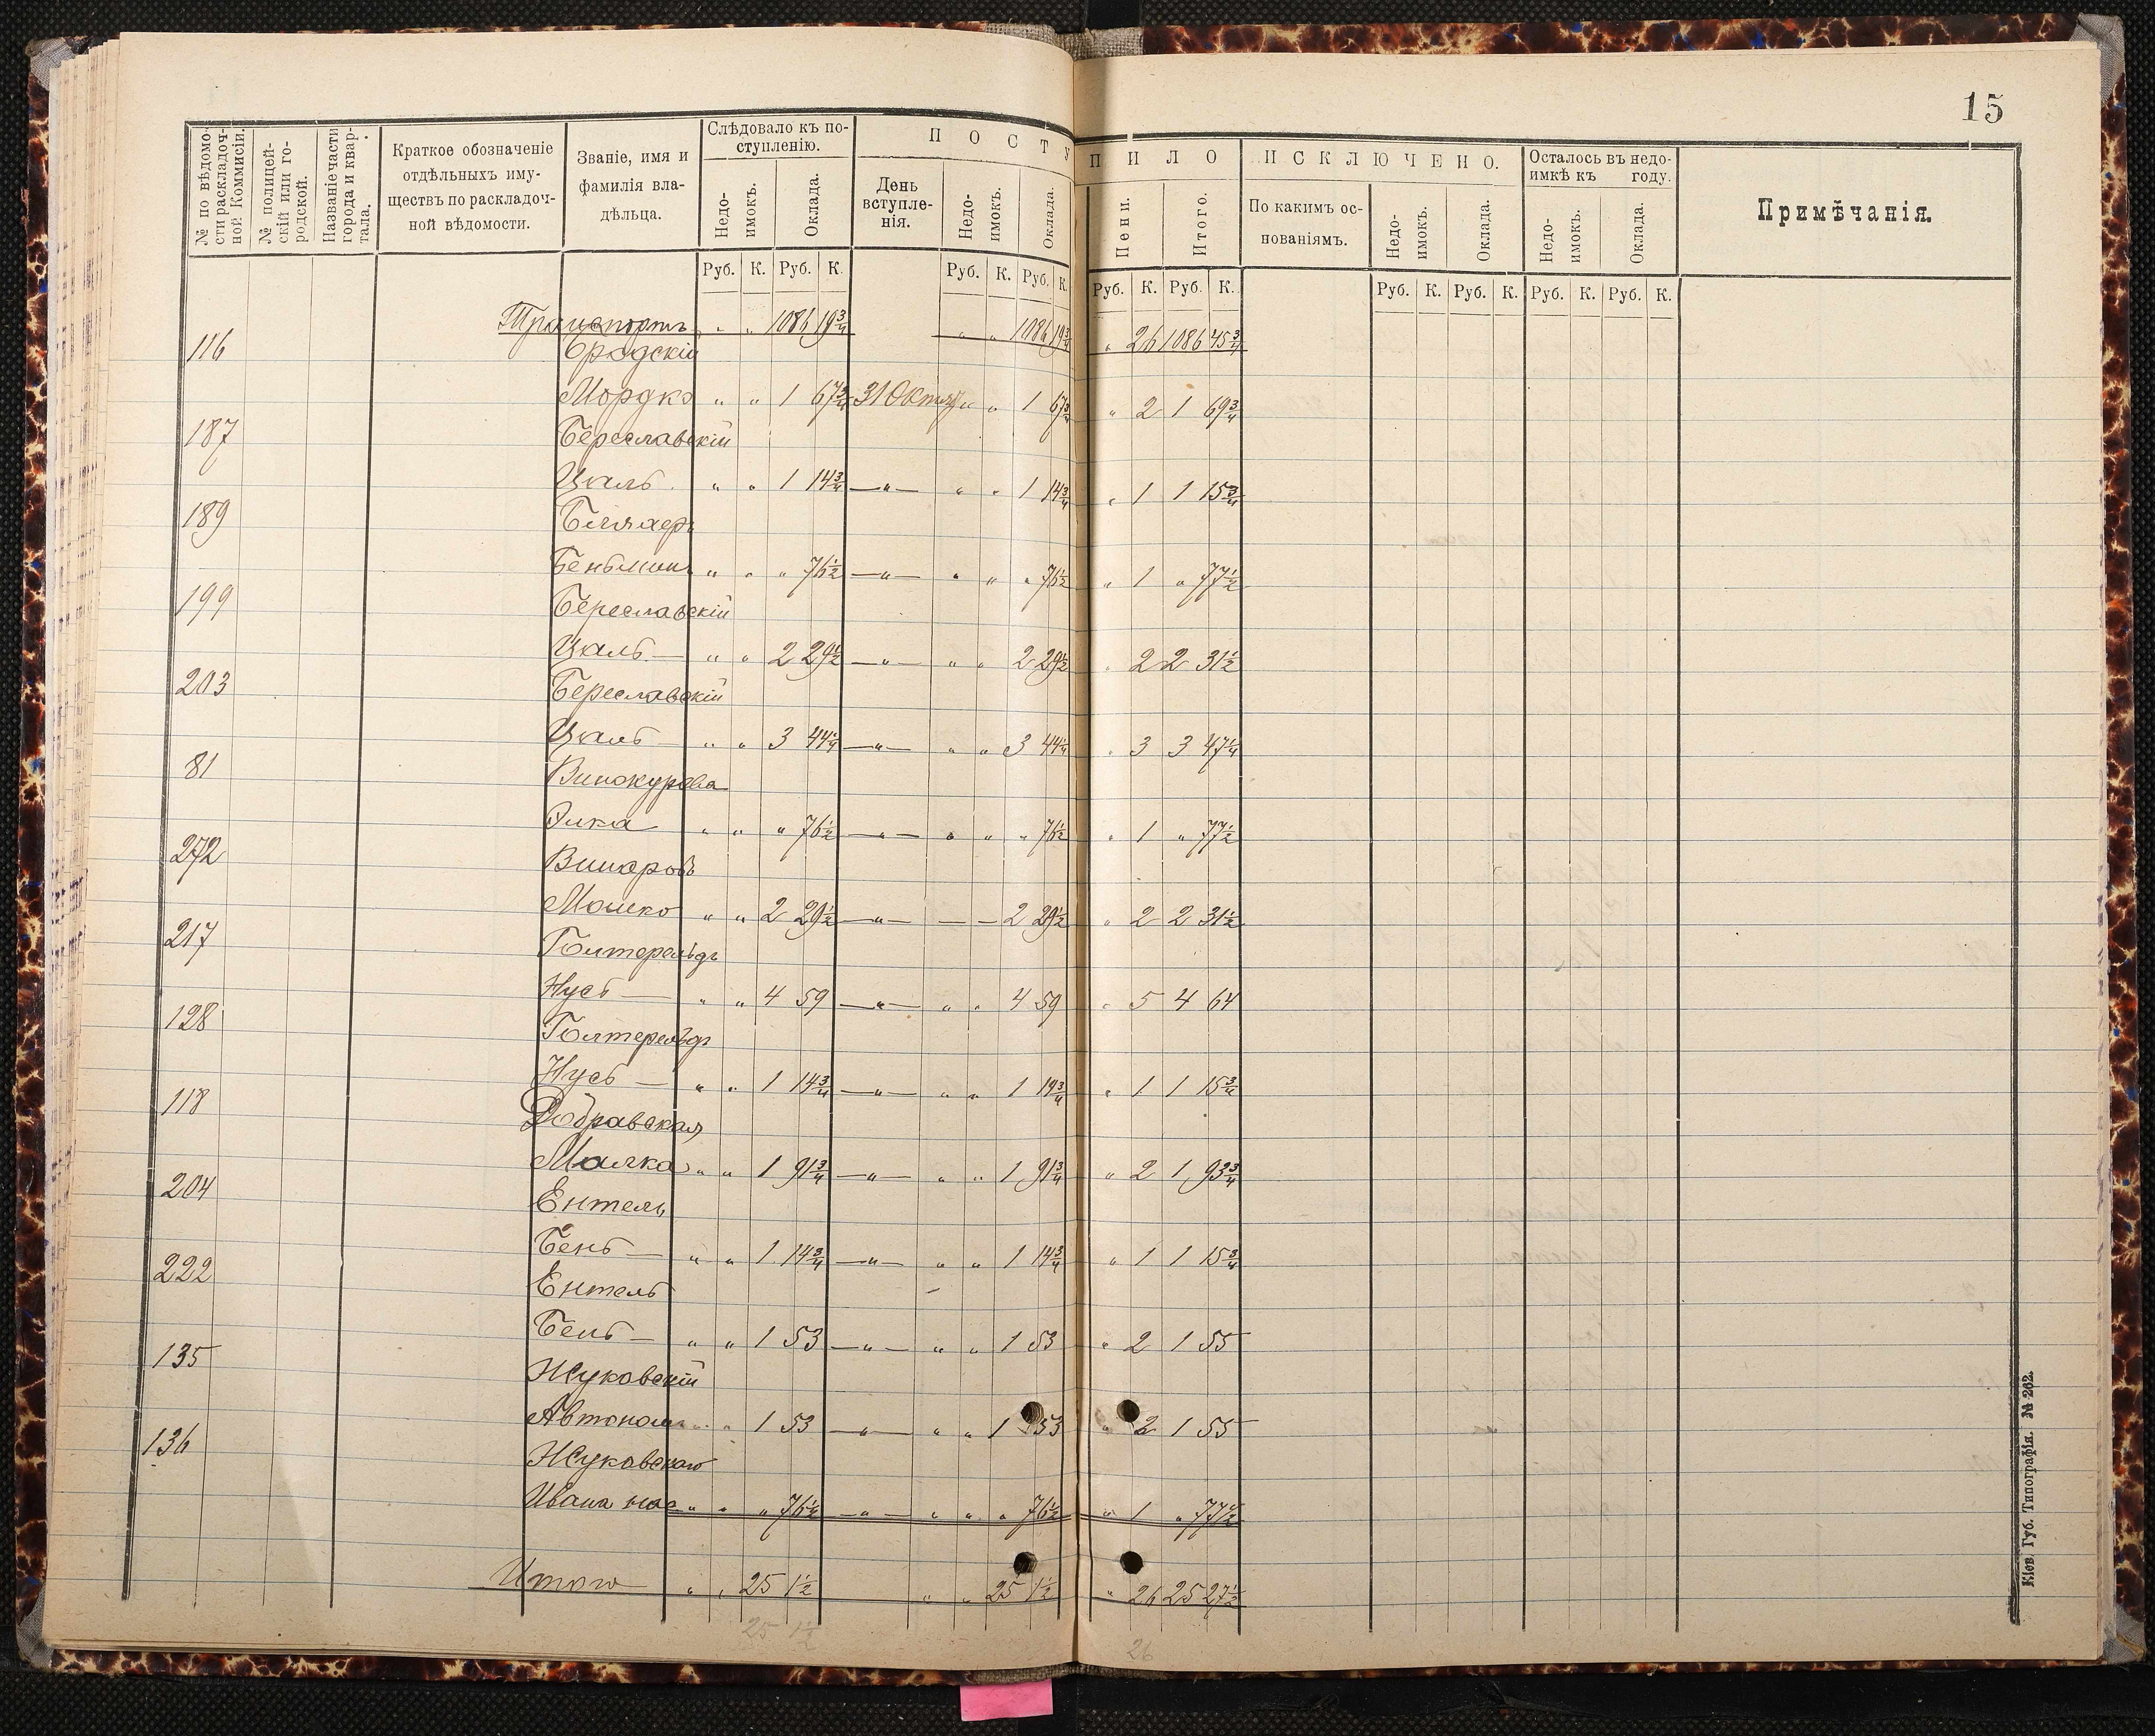 15
№ по вѣдомости раскладочной Коммисіи.
№ полицейскій или городской.
Названіе части города и квартала.
Краткое обозначеніе отдѣльныхъ имуществъ по раскладочной вѣдомости.
Званіе, имя и фамилія владѣльца.
Слѣдовало къ поступленію.
Недоимокъ. Оклада.
ПОСТУПИЛО
День вступленія. Недоимокъ. Оклада. Пени. Итого.
ИСКЛЮЧЕНО.
По какимъ основаніямъ. Недоимокъ. Оклада.
Осталось въ недоимкѣ къ году.
Недоимокъ. Оклада.
Примѣчанія.
Руб. К. Руб. К. Руб. К. Руб. К. Руб. К. Руб. К. Руб. К. Руб. К. Руб. К. Руб. К.
Транспортъ " " 1086 19 3/4 " " 1086 19 3/4 " 26 1086 45 3/4
116 Бродскій
Мордко " " 1 67 3/4 31 Октяб " " 1 67 3/4 " 2 1 69 3/4
187 Береславскій
Цаль " " 1 14 3/4 — " — " " 1 14 3/4 " 1 1 15 3/4
189
Беньминъ " " " 76 1/2 — " — " " " 76 1/2 " 1 " 77 1/2
199 Береславскій
Цаль — " " 2 29 1/2 — " — " " 2 29 1/2 " 2 2 31 1/2
203 Береславскій
Цаль — " " 3 44 1/4 — " — " " 3 44 1/4 " 3 3 47 1/4
81 Винокурова
Элка " " " 76 1/2 — " — " " " 76 1/2 " 1 " 77 1/2
272 Винаровъ
Мошко " " 2 29 1/2 — " — — — 2 29 1/2 " 2 2 31 1/2
217
Нусь — " " 4 59 — " — " " 4 59 " 5 4 64
128
Нусь — " " 1 14 3/4 — " — " " 1 14 3/4 " 1 1 15 3/4
118 Добравская
Малка " " 1 91 3/4 — " — " " 1 91 3/4 " 2 1 93 3/4
204 Ентель
Бень — " " 1 14 3/4 — " — " " 1 14 3/4 " 1 1 15 3/4
222 Ентель
Бень — " " 1 53 — " — " " 1 53 " 2 1 55
135 Жуковскій
Автоном " " 1 53 — " — " " 1 53 " 2 1 55
136 Жуковскаго
Ивана нас " " " 76 1/2 — " — " " " 76 1/2 " 1 " 77 1/2
Итого " " 25 1 1/2 " " 25 1 1/2 " 26 25 27 1/2
25 1 1/2 26
Кіев. Губ. Типографія. № 262.